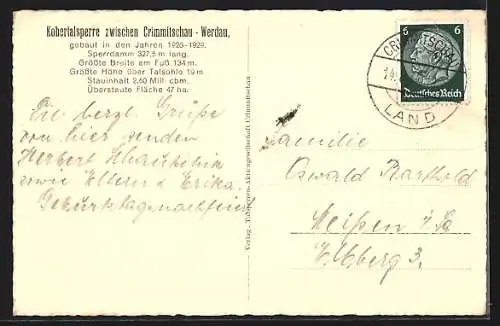 Kobertalsperre zwischen Crimmitschau - Werdau,
gebaut in den Jahren 1925-1929.
Sperrdamm 327,5 m lang.
Größte Breite am Fuß 134 m.
Größte Höhe über Talsohle 19 m
Stauinhalt 2.60 Mill. cbm.
Überstaute Fläche 47 ha.
Die herzl. Grüße
von hier senden
Herbert
sowie Eltern u. Erika.
Geburtstagsnachfeier
Verlag. Aktiengesellschaft Crimmitschau
6 6
Deutsches Reich
LAND
Familie
Oswald Barthold
Meißen i/Sa
Elbberg 3.